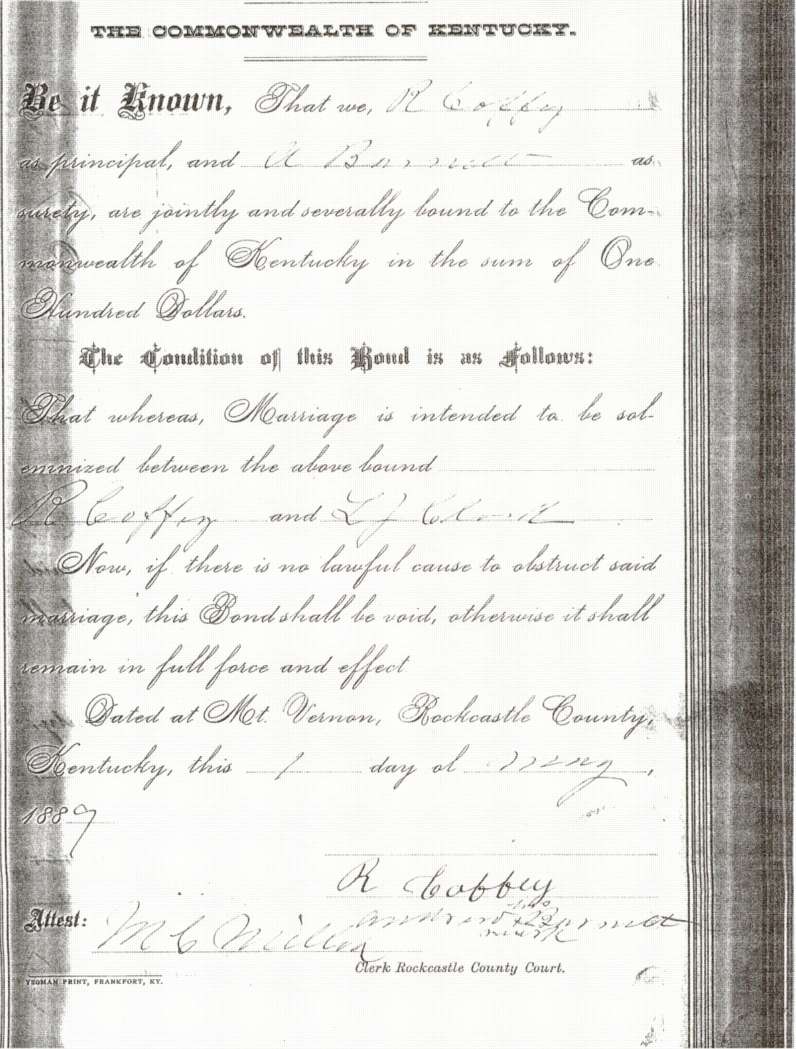 THE COMMONWEALTH OF KENTUCKY.
Be it Known, That we, R Coffey
as principal, and A Burnett as
surety, are jointly and severally bound to the Com-
monwealth of Kentucky in the sum of One
Hundred Dollars.
The Condition of this Bond is as Follows:
That whereas, Marriage is intended to be sol-
emnized between the above bound
R Coffey and L J
Now, if there is no lawful cause to obstruct said
marriage, this Bond shall be void, otherwise it shall
remain in full force and effect
Dated at Mt. Vernon, Rockcastle County,
Kentucky, this 1 day of May,
1889
R Coffey
Attest: M C Miller
Andrew his x mark Burnett
Clerk Rockcastle County Court.
YEOMAN PRINT, FRANKFORT, KY.